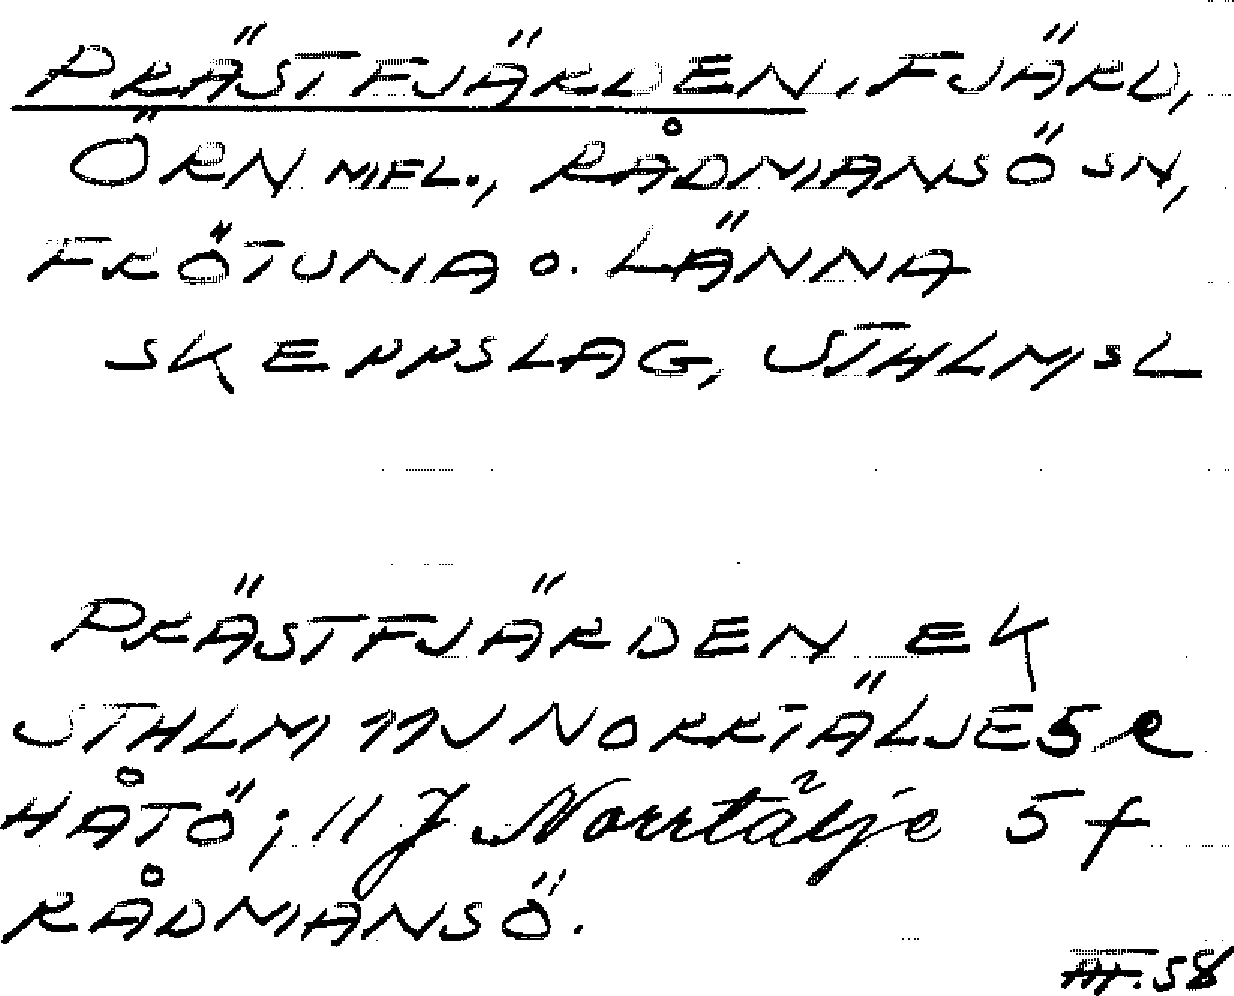 PRÄSTFJÄRDEN, FJÄRD,
ÖRN MFL., RÅDMANSÖ SN,
FRÖTUNA O. LÄNNA
SKEPPSLAG, STHLMSL
PRÄSTFJÄRDEN EK
STHLM 11J NORRTÄLJE 5 e
HÅTÖ; 11 J Norrtälje 5 f
RÅDMANSÖ.
HF. 58